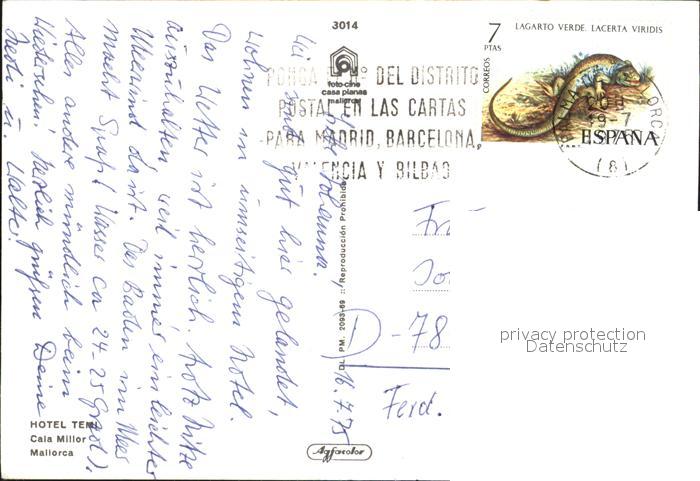 3014
foto-cine
casa planas
mallorca
7
PTAS
CORREOS
LAGARTO VERDE. LACERTA VIRIDIS
ESPAÑA
PONGA EL Nº DEL DISTRITO
POSTAL EN LAS CARTAS
PARA MADRID, BARCELONA,
VALENCIA Y BILBAO
(8)
16.7.75
Liebe Johanna.
Wir sind gut hier gelandet,
wohnen in umseitigem Hotel.
Das Wetter ist herrlich. Trotz Hitze
auszuhalten, weil immer ein leichter
Meerwind da ist. Das Baden im Meer
macht Spaß (Wasser ca 24-25 Grad).
Alles andere mündlich beim
Wiedersehn! Herzlich grüßen Deine
u. Walter.
D.L. PM. 2093-69 :: Reproducción Prohibida
D-78
Ferd.
HOTEL
Cala Millor
Mallorca
Agfacolor
privacy protection
Datenschutz